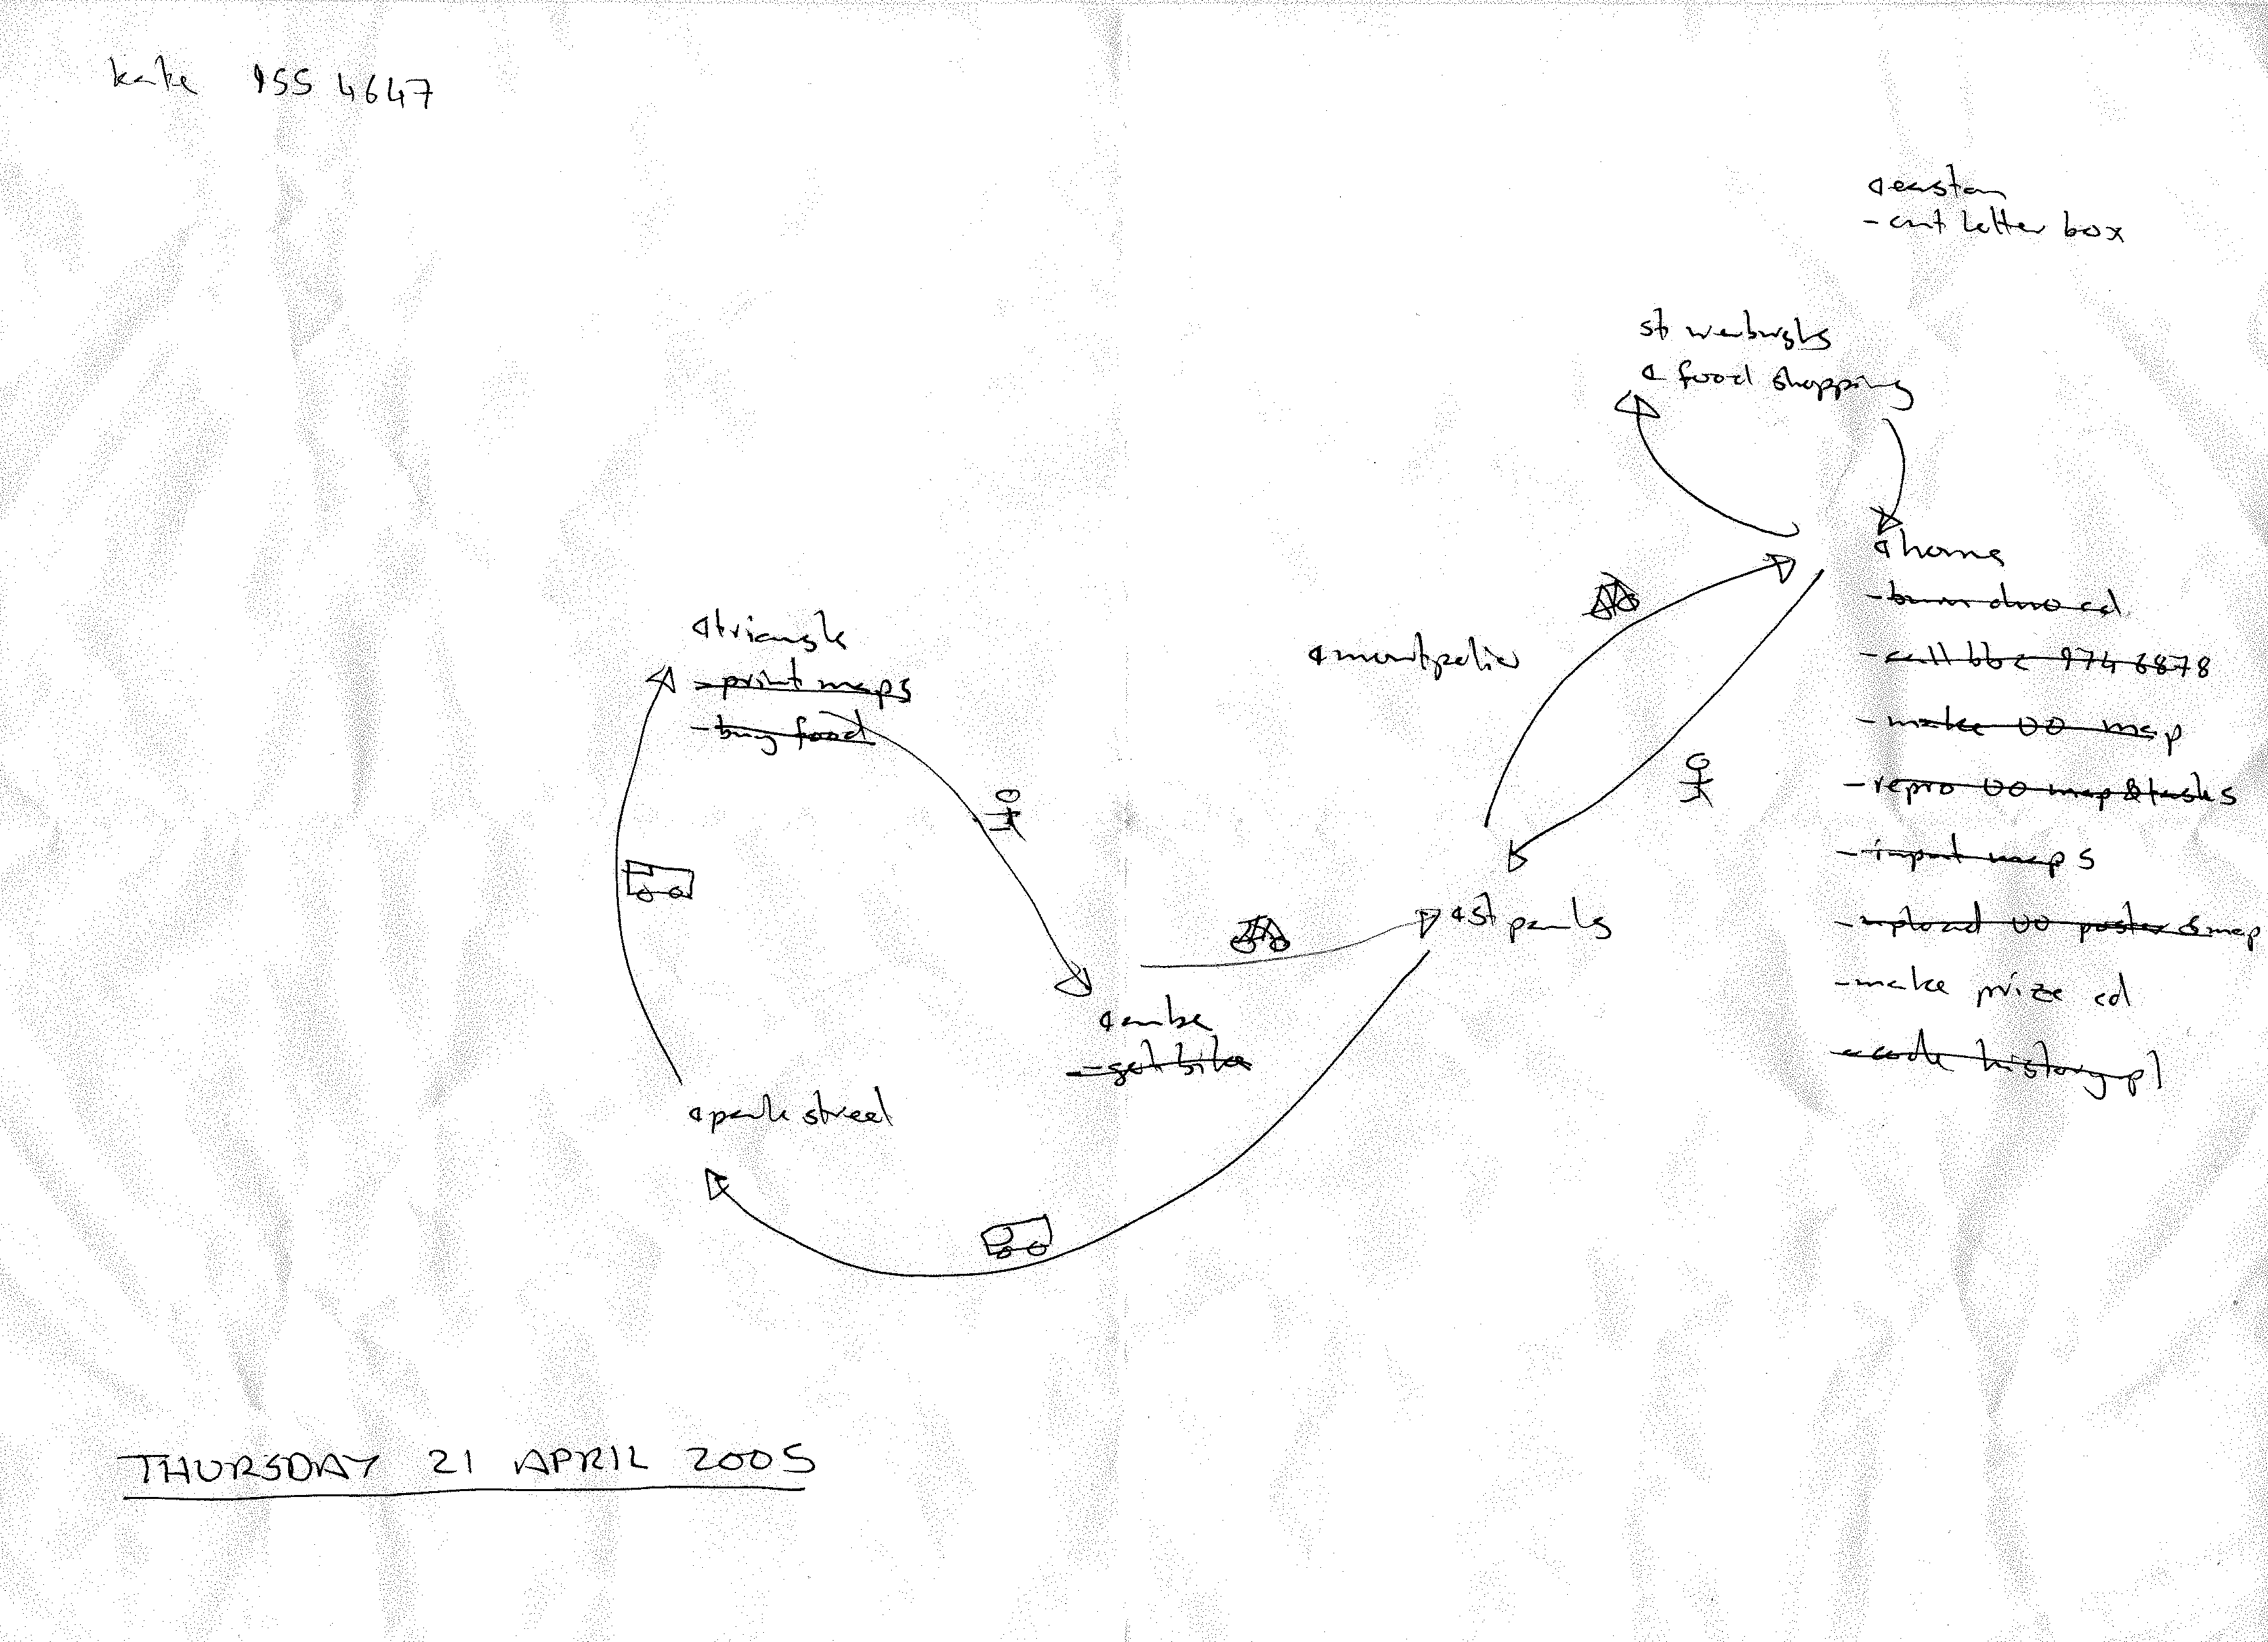 kate 955 4647
@easton
- cut letter box
st werburghs
@ food shopping
@home
- burn dmo cd
- call bbc 974 6878
- make UO map
- repro UO map & tasks
- input maps
- upload UO poster & map
- make prize cd
- code history.pl
@triangle
- print maps
- buy food
@montpelier
@st pauls
@cube
- get bike
@park street
THURSDAY 21 APRIL 2005